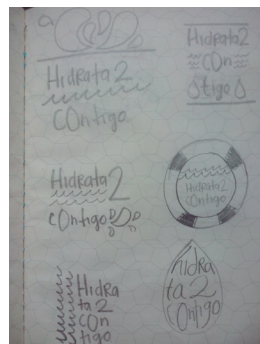 Hidrata2
COntigo
Hidrata2
COn
tigo
Hidrata2
cOntigo
Hidrata2
cOntigo
Hidra
ta 2
cOn
tigo
Hidra
ta 2
COntigo